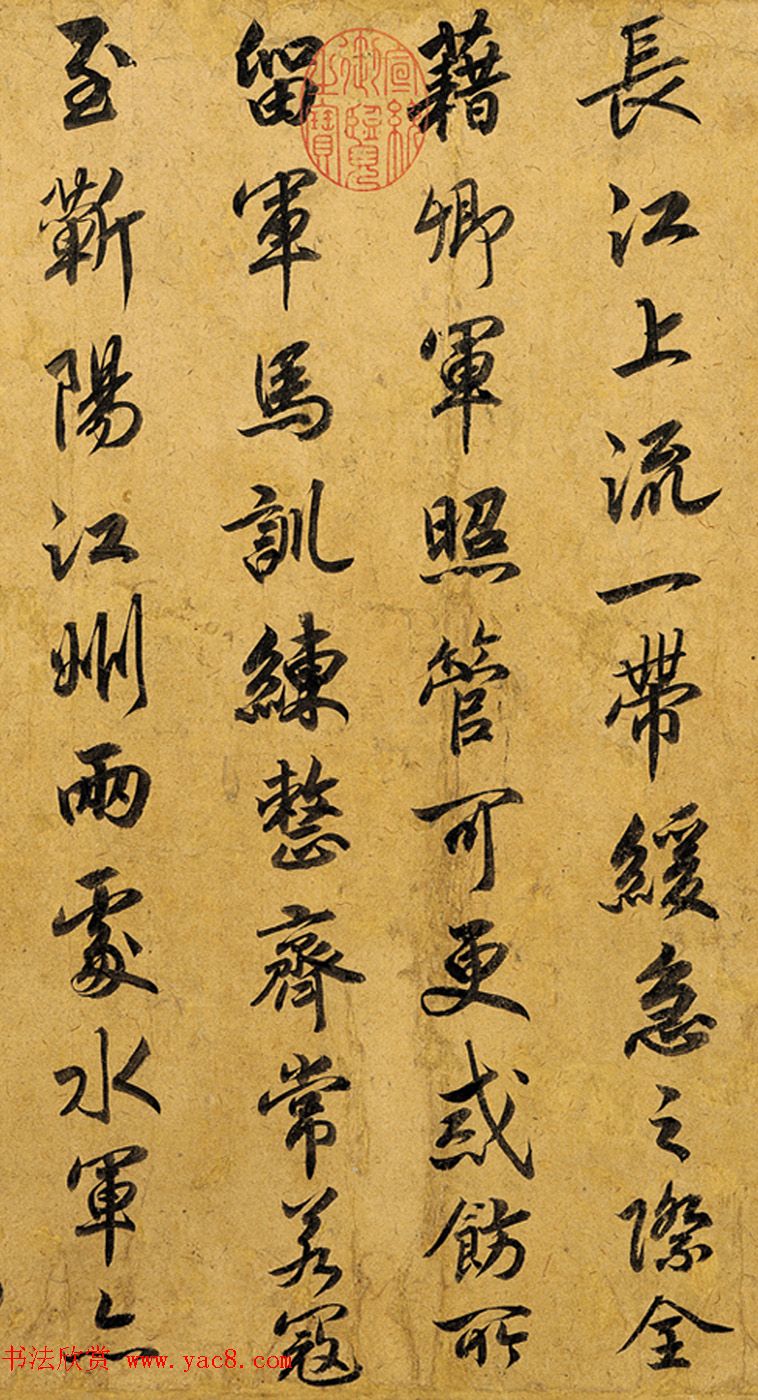 長江上流一帶緩急之際全
藉卿軍照管可更戒飭所
留軍馬訓練整齊常若寇
至蘄陽江州兩處水軍亦
宣統御覽之寶
书法欣赏 www.yac8.com